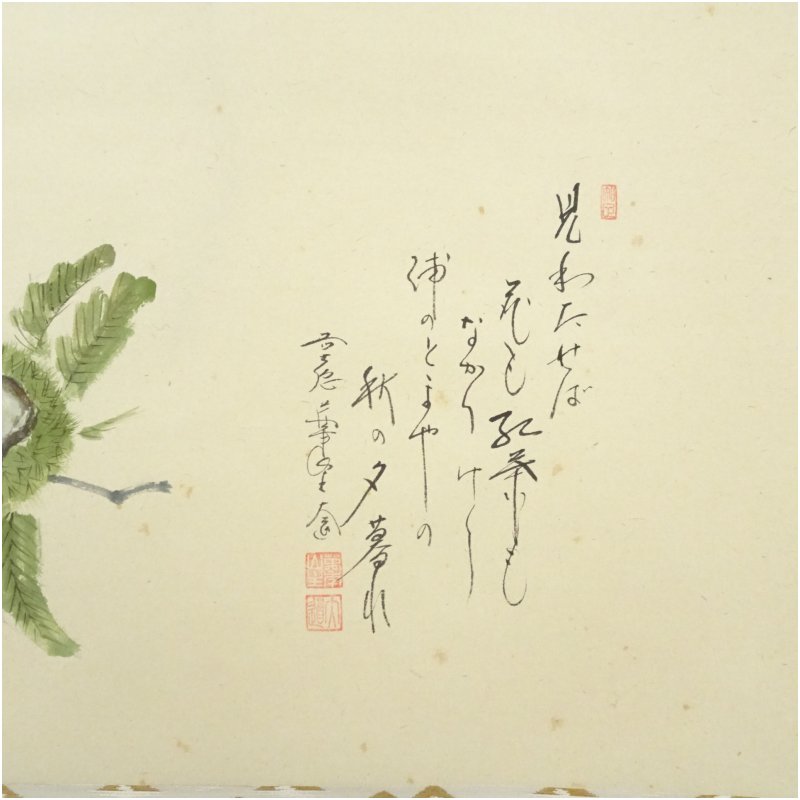 見わたせば
花も紅葉も
なかりけり
浦のとまやの
秋の夕暮れ